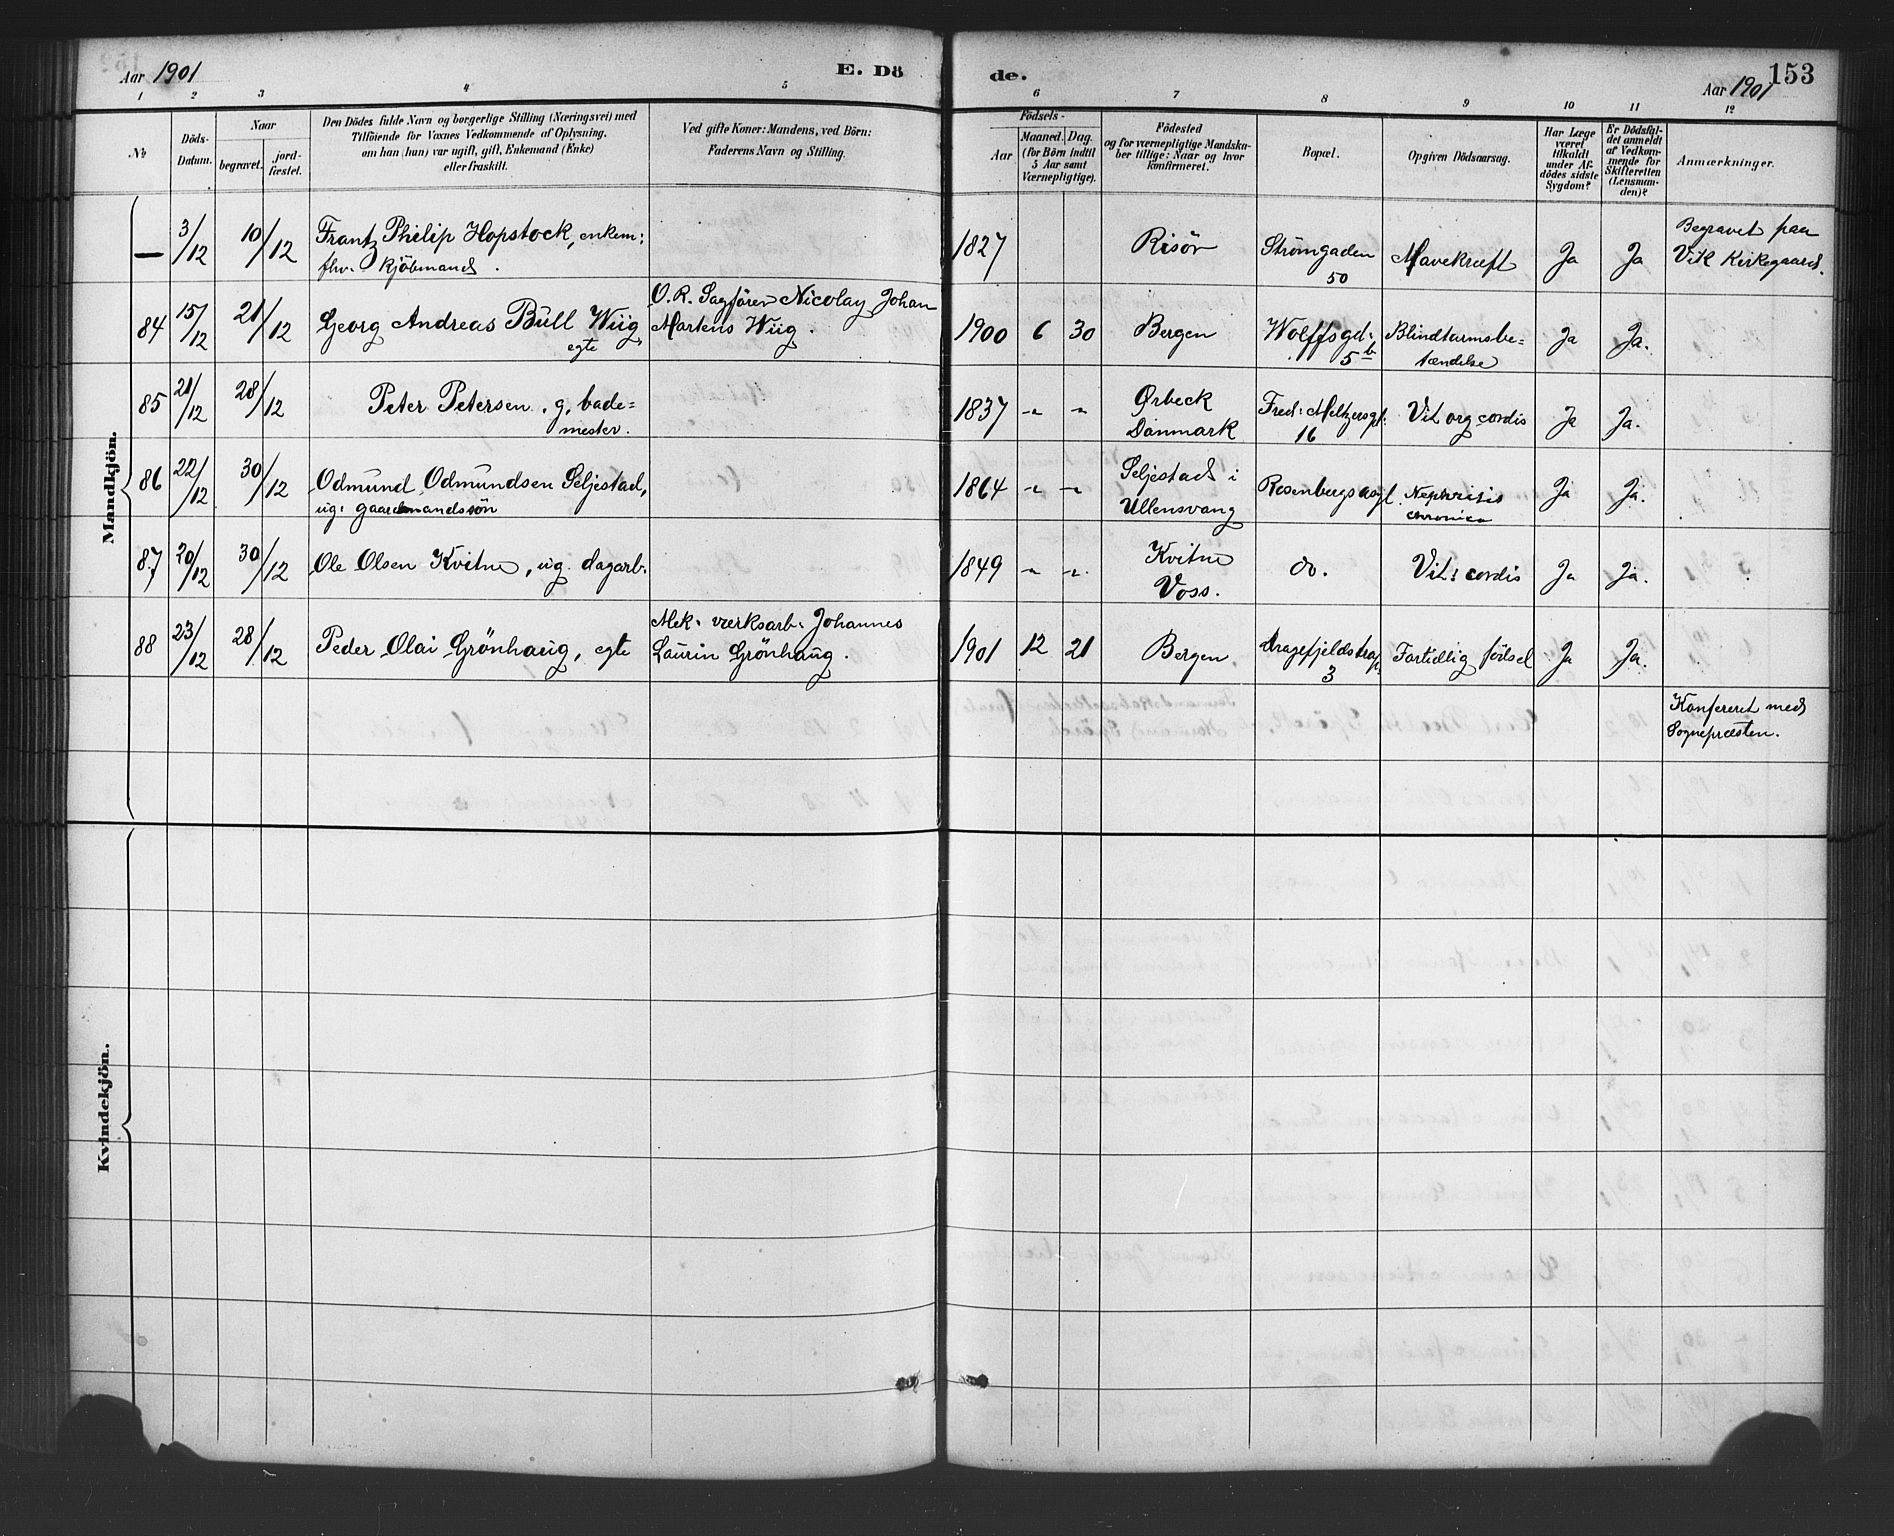 Aar 1901
E. Dö
de.
Aar 1901
153
1 2 3 4 5 6 7 8 9 10 11 12
No
Döds-Datum.
Naar
begravet.
jord-fæstet.
Den Dödes fulde Navn og borgerlige Stilling (Næringsvei) med
Tilföiende for Voxnes Vedkommende af Oplysning,
om han (hun) var ugift, gift, Enkemand (Enke)
eller fraskilt.
Ved gifte Koner: Mandens, ved Börn:
Faderens Navn og Stilling.
Födsels-
Aar
Maaned.
Dag.
(for Börn indtil
5 Aar samt
Værnepligtige).
Födested
og for værnepligtige Mandska-
ber tillige: Naar og hvor
konfirmeret.
Bopæl.
Opgiven Dödsaarsag.
Har Læge
været
tilkaldt
under Af-
dödes sidste
Sygdom?
Er Dödsfal-
det anmeldt
af Vedkom-
mende for
Skifteretten
(Lensman-
den)?
Anmærkninger.
Mandkjön.
— 3/12 10/12 Frantz Philip Hopstock, enkem:
fhv. kjöbmand.
1827 Risör Strömgaden
50
Mavekræft Ja Ja Begravet paa
Vik Kirkegaard.
84 15/12 21/12 Georg Andreas Bull Wiig,
egte
O. R. Sagförer Nicolay Johan
Martens Wiig.
1900 6 30 Bergen Wolffsgd:
5b
Blindtarmsbe=
tændelse
Ja Ja.
85 21/12 28/12 Peter Petersen, g, bade=
mester.
1837 " " Ørbeck
Danmark
Fred: Meltzersgt:
16
Vit org cordis Ja Ja.
86 22/12 30/12 Odmund Odmundsen Seljestad,
ug: gaardmandssön
1864 " " Seljestad i
Ullensvang
Rosenbergsasyl Nephritis
chronica
Ja Ja.
87 20/12 30/12 Ole Olsen Kvitne, ug. dagarb.
1849 " " Kvitne
Voss.
do. Vit: cordis Ja Ja.
88 23/12 28/12 Peder Olai Grönhaug, egte
Mek: værksarb: Johannes
Laurin Grönhaug.
1901 12 21 Bergen Dragefjeldstrap:
3
Fortidlig födsel Ja Ja.
Konfereret med
Sognepræsten.
Kvindekjön.